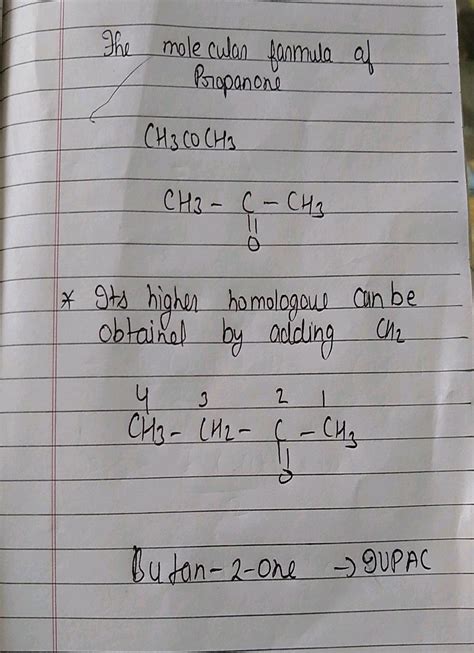 The molecular formula of
Propanone
CH3COCH3
CH3 - C - CH3
||
O
* Its higher homologous can be
obtained by adding CH2
4 3 2 1
CH3 - CH2 - C - CH3
||
O
Butan-2-one → IUPAC